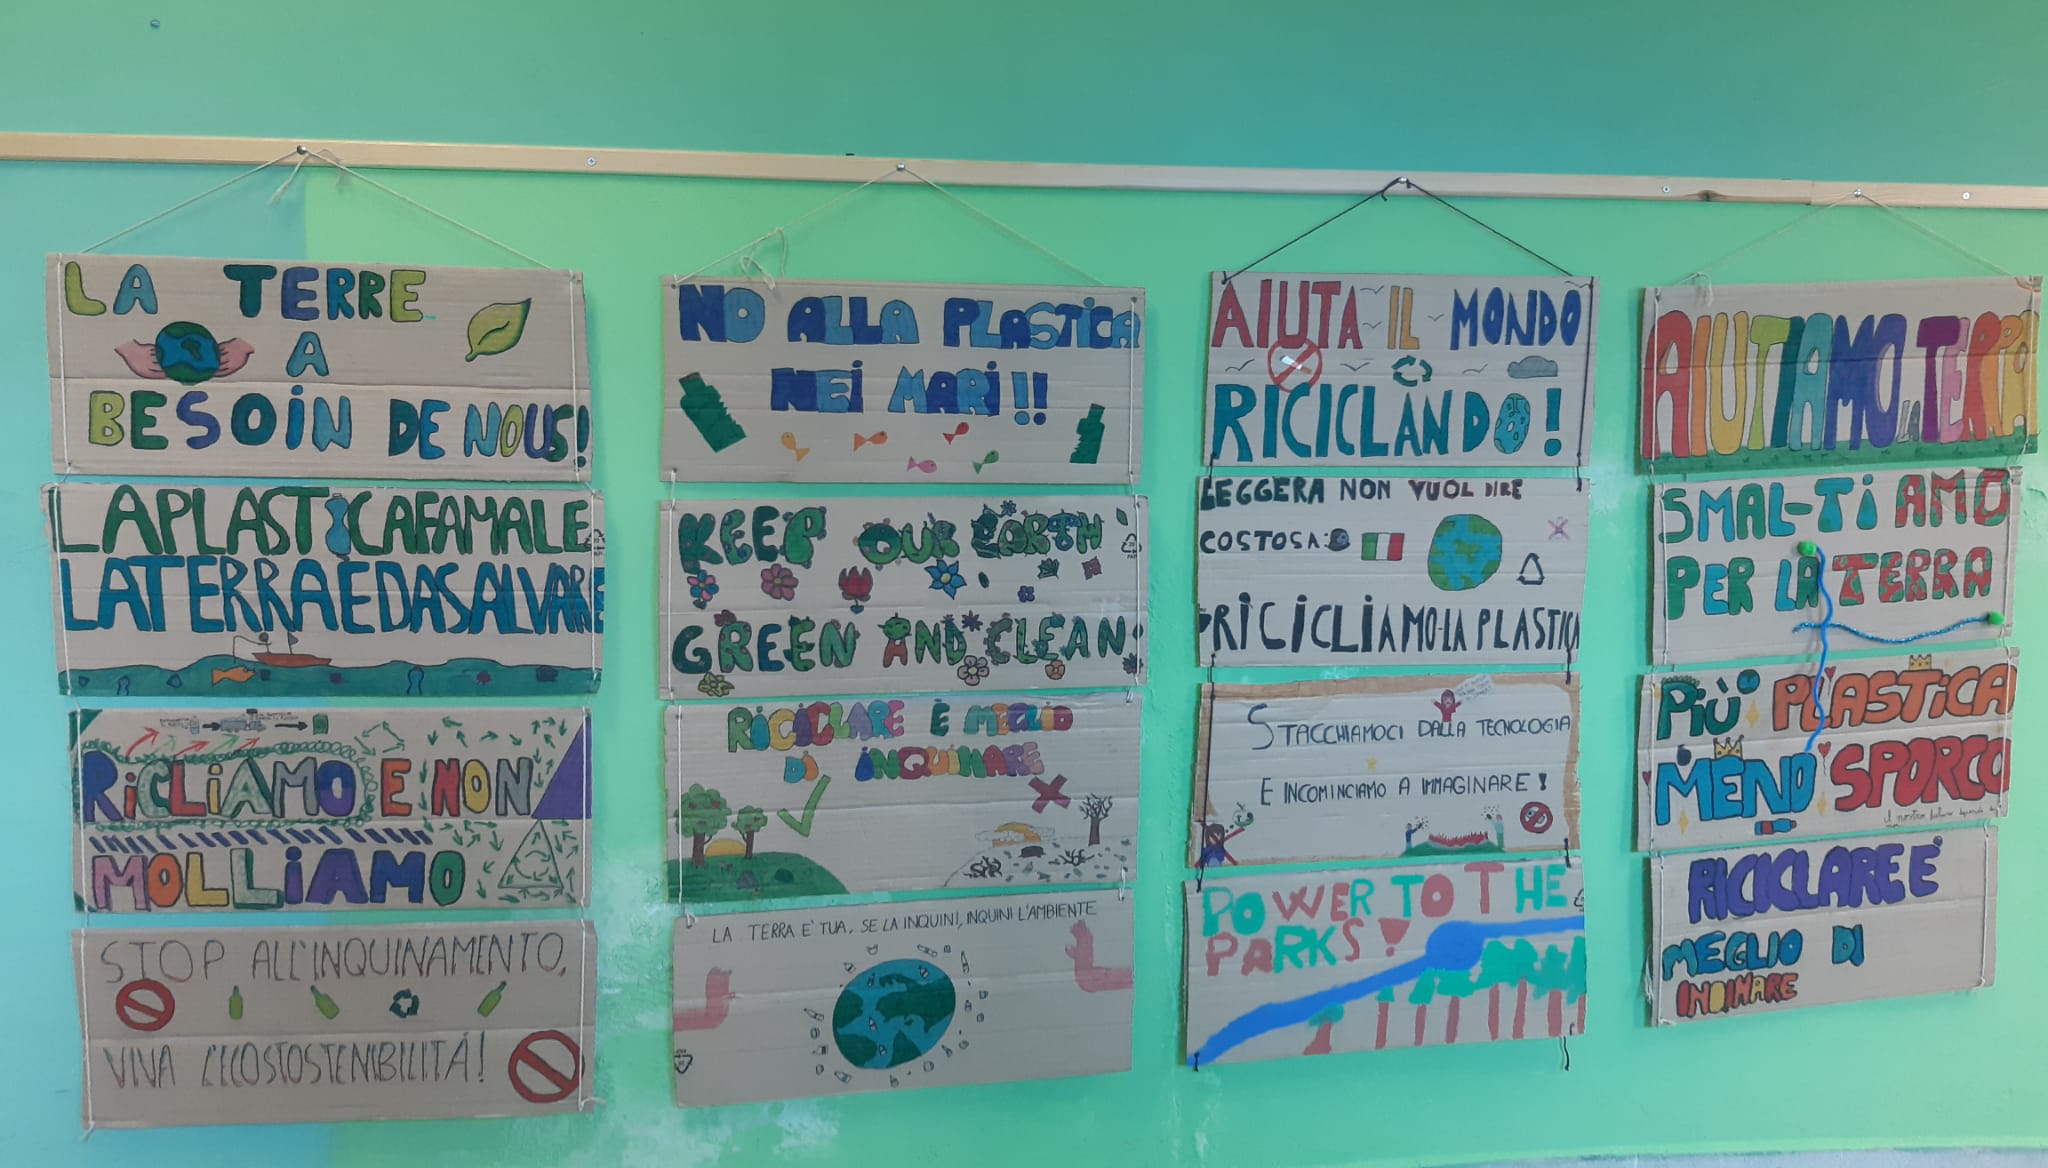 LA TERRE
A
BESOIN DE NOUS!
LA PLASTICA FA MALE
LA TERRA È DA SALVARE
RiCLiAMO E NON
MOLLiAMO
STOP ALL'INQUINAMENTO,
VIVA L'ECOSTOSTENIBILITÁ!
NO ALLA PLASTICA
NEI MARI!!
KEEP OUR EARTH
GREEN AND CLEAN
RICICLARE È MEGLIO
DI INQUINARE
LA TERRA E' TUA, SE LA INQUINI, INQUINI L'AMBIENTE
AIUTA IL MONDO
RICICLANDO!
LEGGERA NON VUOL DIRE
COSTOSA:
RICICLIAMO-LA PLASTICA
STACCHIAMOCI DALLA TECNOLOGIA
E INCOMINCIAMO A IMMAGINARE!
POWER TO THE
PARKS!
AIUTIAMO LA TERRA
SMAL-Ti AMO
PER LA TERRA
PIÙ PLASTICA
MENO SPORCO
Il nostro futuro
RICICLARE E'
MEGLIO DI
INQINARE